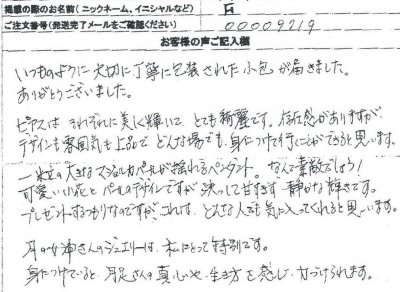 掲載の際のお名前(ニックネーム、イニシャルなど)
ご注文番号(発送完了メールをご確認ください) 00009219
お客様の声ご記入欄
いつものように大切に丁寧に包装された小包が届きました。
ありがとうございました。
ピアスはそれぞれに美しく輝いて とても綺麗です。存在感がありますが、
デザインも雰囲気も上品で どんな場でも、身につけて行くことができると思います。
一粒の大きなマジョルカパールが揺れるペンダント。なんて素敵でしょう!
可愛い小花とパールのデザインですが 決して甘すぎず 静かな輝きです。
プレゼントするつもりなのですが、これは、どんな人でも気に入ってくれると思います。
耳の女神さんのジュエリーは、私にとって特別です。
身につけていると、 さんの真心や、生き方を感じ、力づけられます。